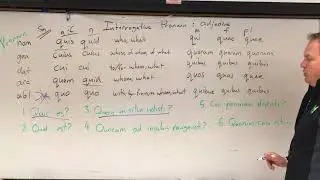 Sn m/f n Interrogative Pronoun & adjective m f n Pl
Pronoun nom quis quid who, what qui quae quae
gen cuius cuius whose, of whom, of what quorum quarum quorum
dat cui cui to/for whom, what quibus quibus quibus
acc quem quid whom, what quos quas quae
abl quo quo with/by/from whom, what quibus quibus quibus
1 Quis es? 3. Quem in silva vidisti? 5 Cui pecuniam dedisti?
2 Quid est? 4 Quicum ad insulam navigavisti? 6. Quorum casa est